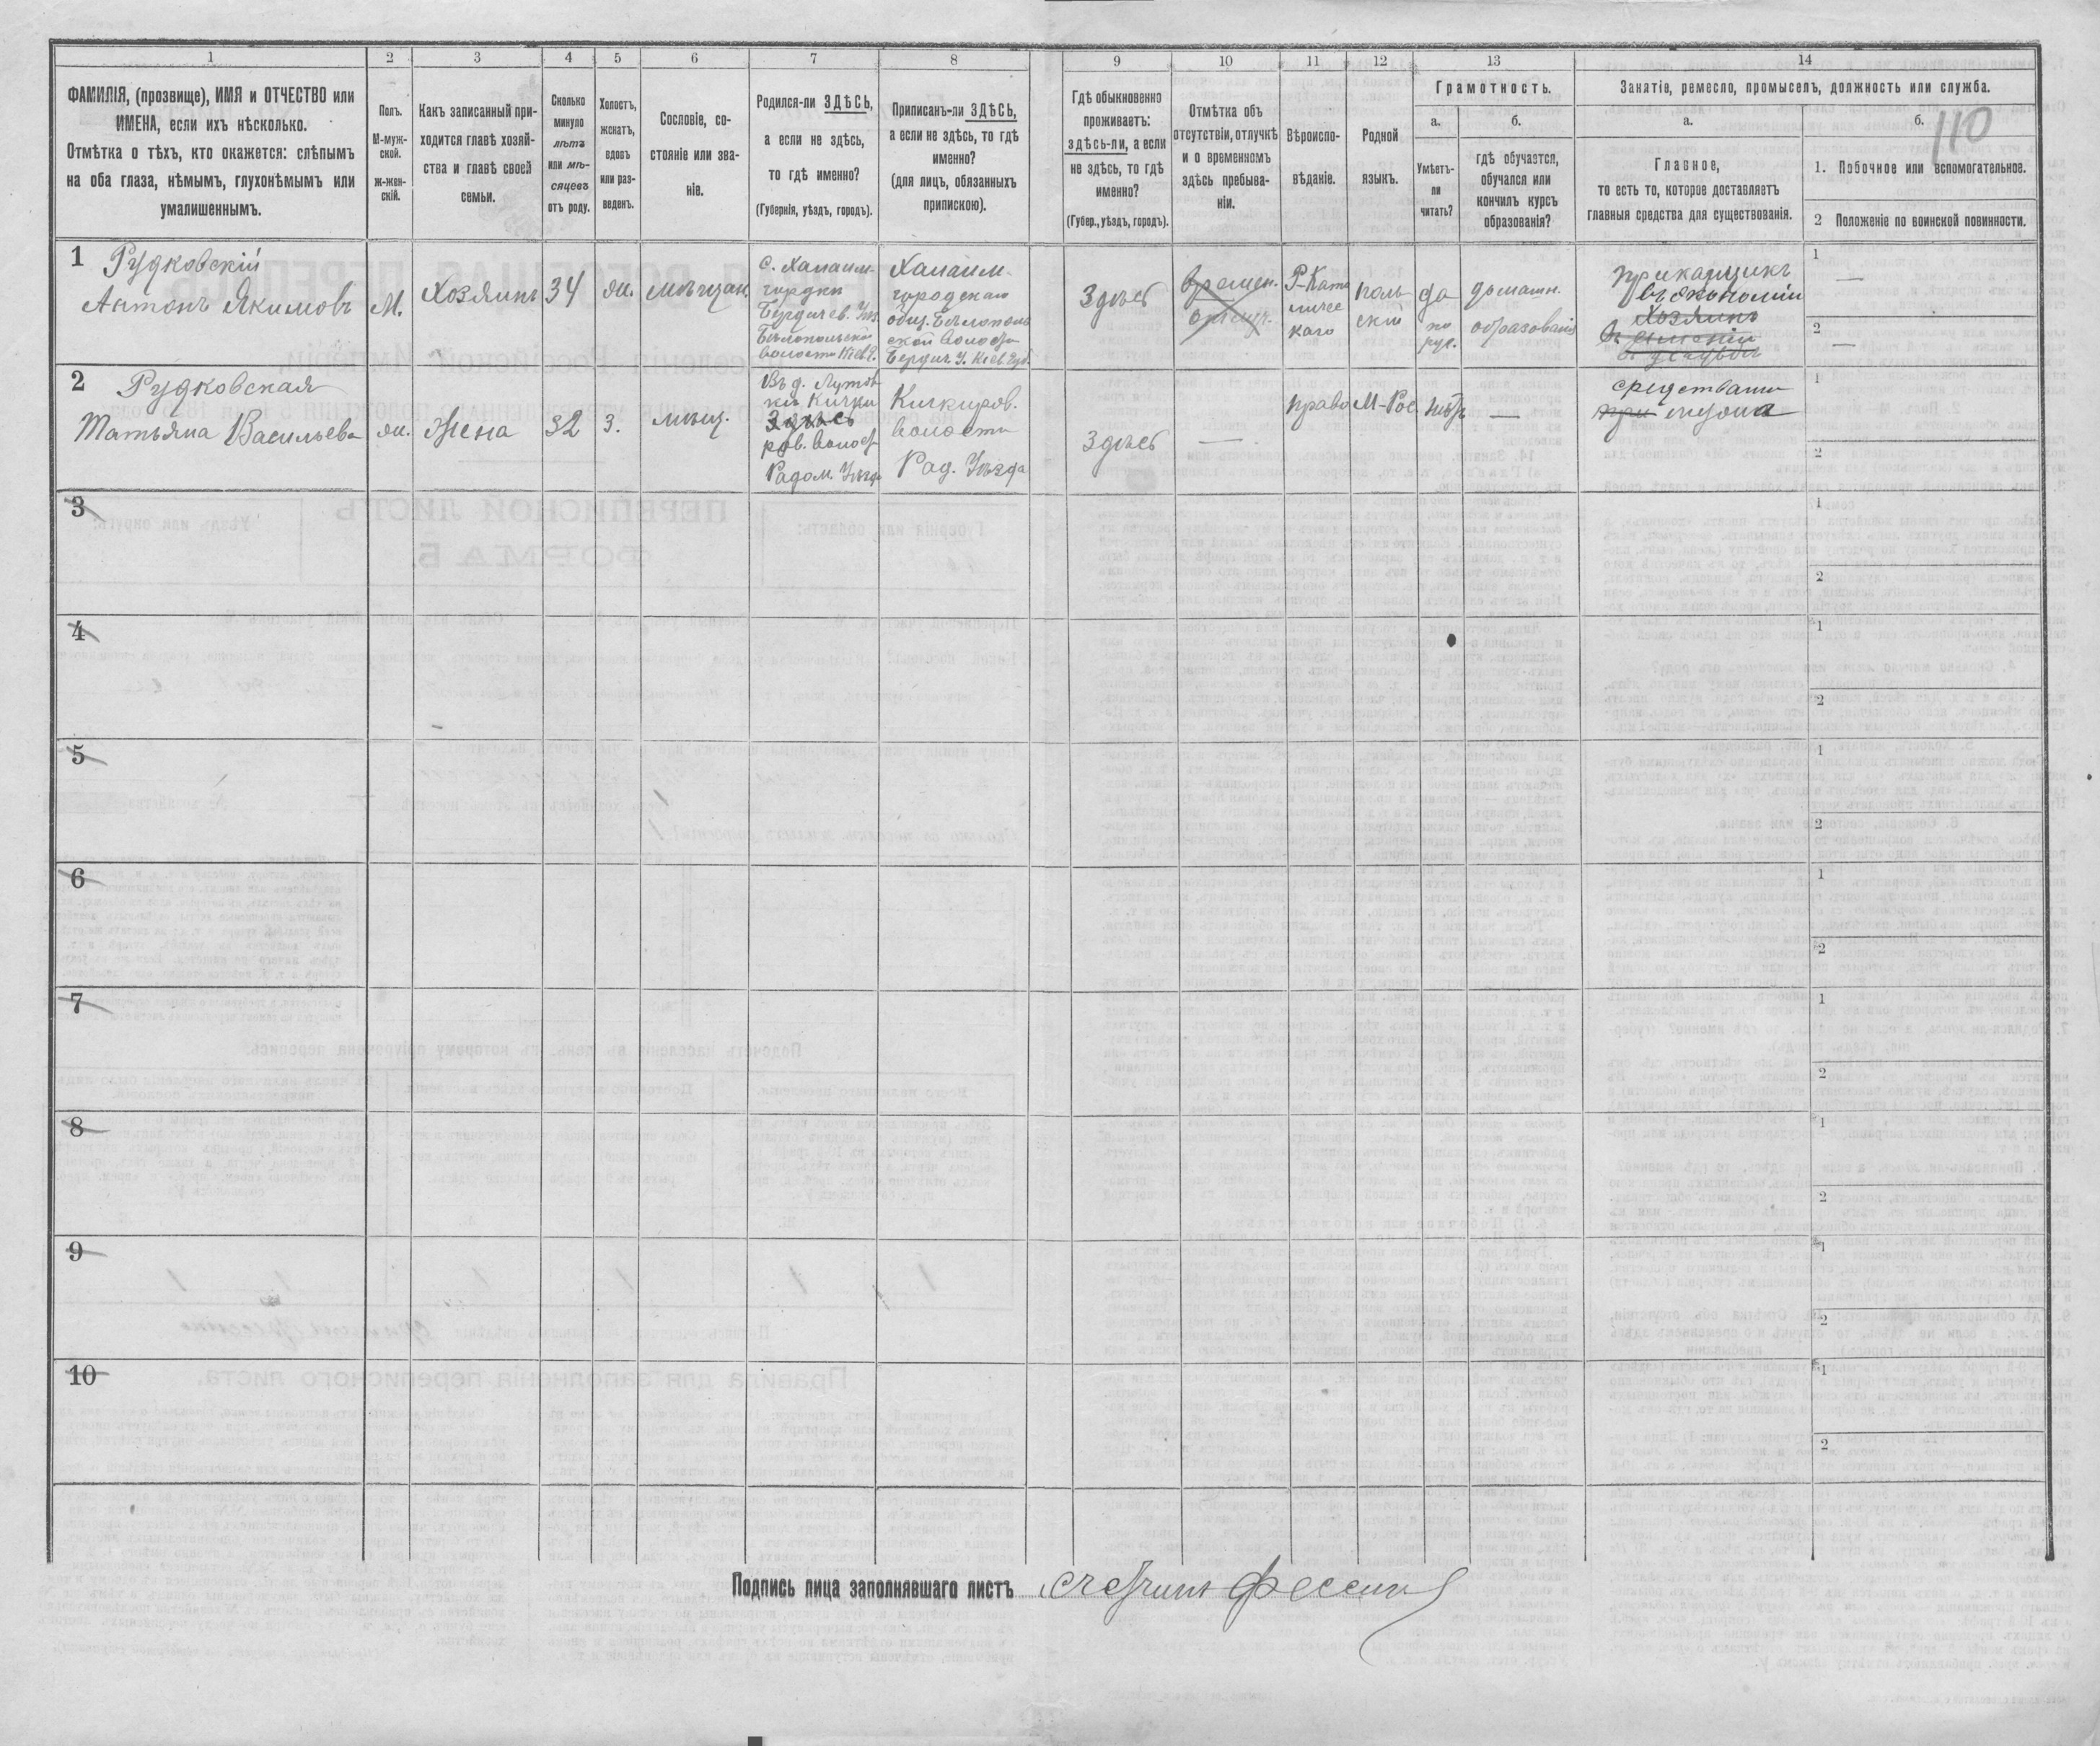 1 2 3 4 5 6 7 8 9 10 11 12 13 14
ФАМИЛІЯ, (прозвище), ИМЯ и ОТЧЕСТВО или
ИМЕНА, если ихъ нѣсколько.
Отмѣтка о тѣхъ, кто окажется: слѣпымъ
на оба глаза, нѣмымъ, глухонѣмымъ или
умалишеннымъ.
Полъ.
М-муж-
ской.
ж-жен-
скій.
Какъ записанный при-
ходится главѣ хозяй-
ства и главѣ своей
семьи.
Сколько
минуло
лѣтъ
или мѣ-
сяцевъ
отъ роду.
Холостъ,
женатъ,
вдовъ
или раз-
веденъ.
Сословіе, со-
стояніе или зва-
ніе.
Родился-ли ЗДѢСЬ,
а если не здѣсь,
то гдѣ именно?
(Губернія, уѣздъ, городъ).
Приписанъ-ли ЗДѢСЬ,
а если не здѣсь, то гдѣ
именно?
(для лицъ, обязанныхъ
припискою).
Гдѣ обыкновенно
проживаетъ:
здѣсь-ли, а если
не здѣсь, то гдѣ
именно?
(Губер., уѣздъ, городъ).
Отмѣтка объ
отсутствіи, отлучкѣ
и о временномъ
здѣсь пребыва-
ніи.
Вѣроиспо-
вѣданіе.
Родной
языкъ.
Грамотность.
а.
Умѣетъ-
ли
читать?
б.
гдѣ обучается,
обучался или
кончилъ курсъ
образованія?
Занятіе, ремесло, промыселъ, должность или служба.
а.
Главное,
то есть то, которое доставляетъ
главныя средства для существованія.
б.
110
1. Побочное или вспомогательное.
2 Положеніе по воинской повинности.
1 Рудковскій
Антонъ Якимовъ
М.
Хозяинъ
34
жн.
мѣщан.
с. Халаим-
городки
Бердичев. Уѣз.
Бѣлопольской
волости Кіев. Г.
Халаим-
городская
общ. Бѣлополь
ской волости
Бердич. У. Кіев. Губ.
Здѣсь
Р-Като
личес
каго
поль
скій
да
по
рус.
домашн.
образованія
Прикащикъ
въ экономіи
Хозяинъ
1 —
2 —
2 Рудковская
Татьяна Васильева
жн.
Жена
32
З.
мѣщ.
Въ д.
Здѣсь
ров. волост.
Радом. Уѣзда
Кичкиров.
волости
Рад. Уѣзда
Здѣсь
—
право
М-Рос
нѣтъ
—
средствами
при мужа
1
2
3
1
2
4
1
2
5
1
2
6
1
2
7
1
2
8
1
2
9
1
2
10
1
2
Подпись лица заполнявшаго листъ